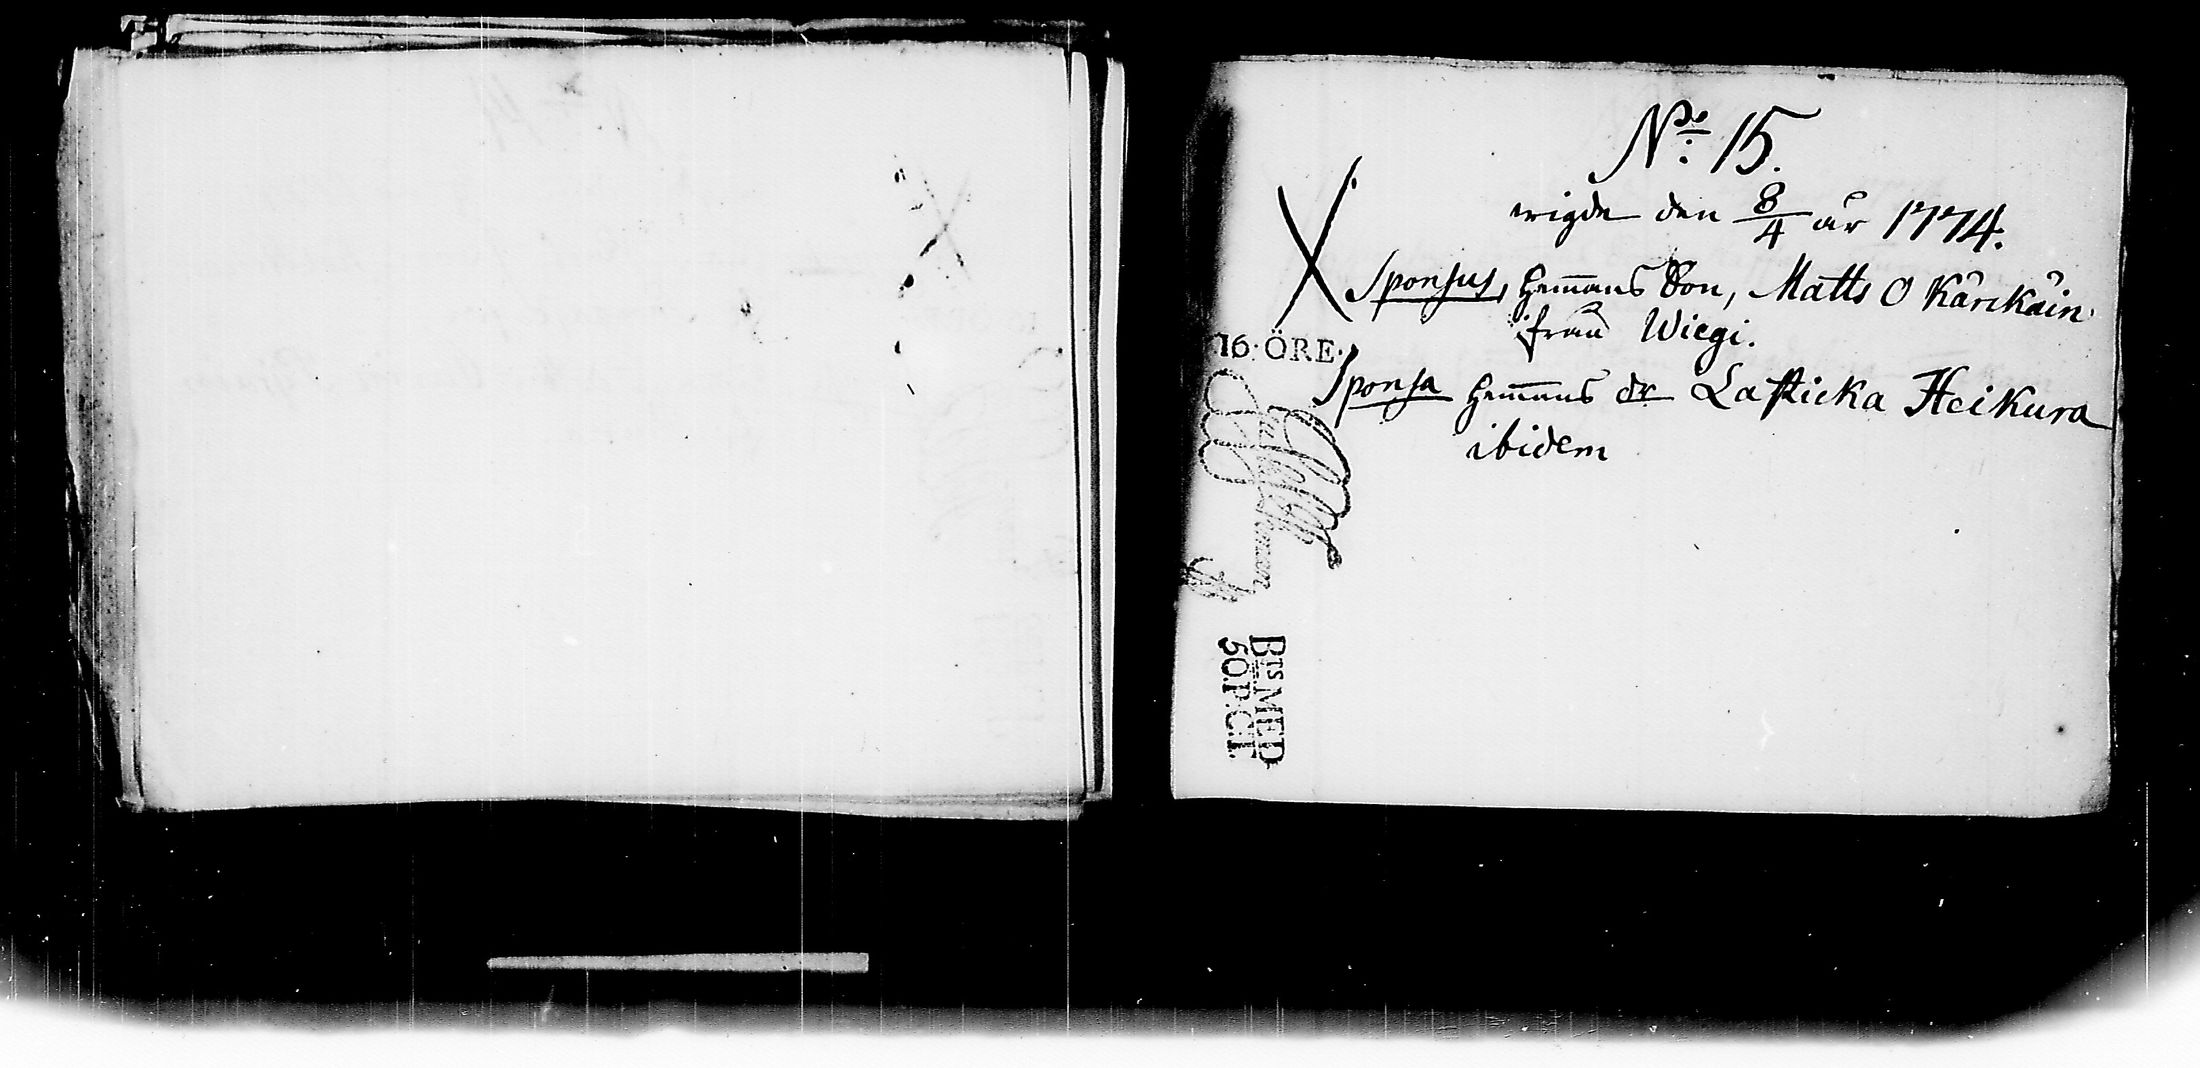 No: 15.
wigde den 8/4 år 1774.
Sponsus, Hem̄ans Son, Matts O Kärckäin:
från Wiegi.
16·ÖRE·
Sponsa Hem̄ans dr Lasticka Heikura
ibidem
BTS.MED
50.P.CT.